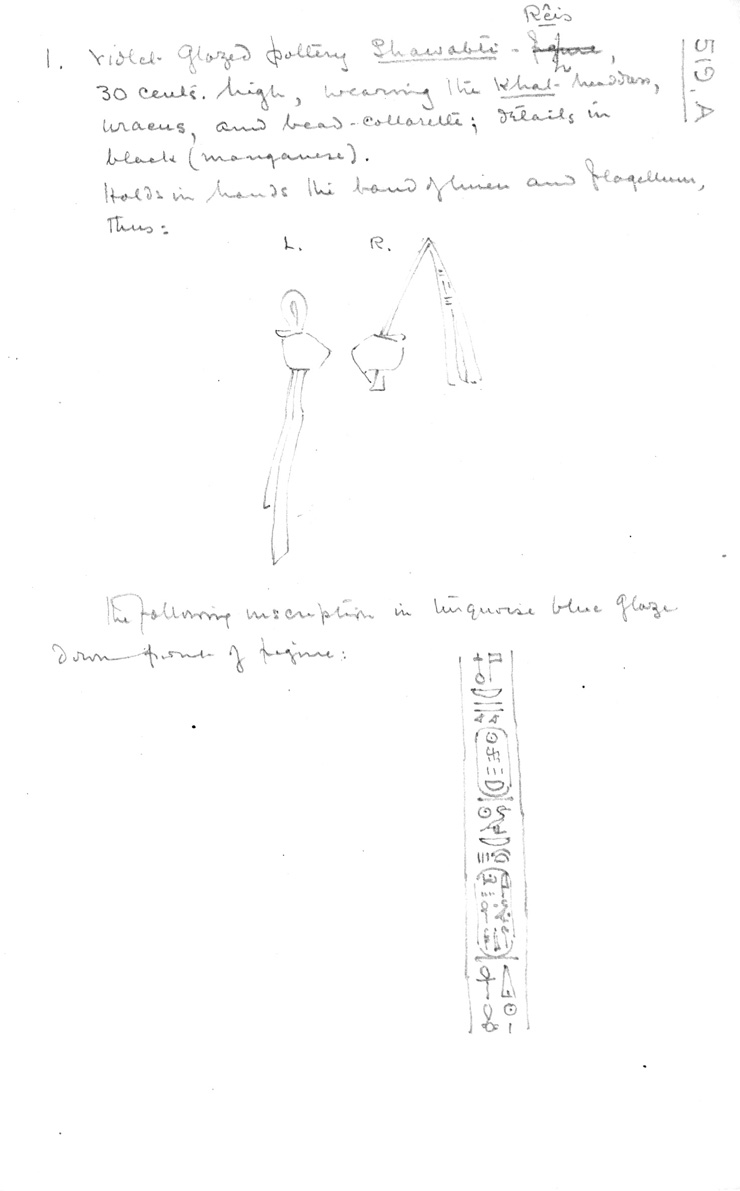 519. A
Rêis
1. Violet Glazed pottery Shawabti - figure,
30 cents. high, wearing the Khat-headdress,
uraeus, and bead-collarette; details in
black (manganese).
Holds in hands the band of linen and flagellum,
Thus:
L. R.
The following inscription in turquoise blue glaze
down front of figure: